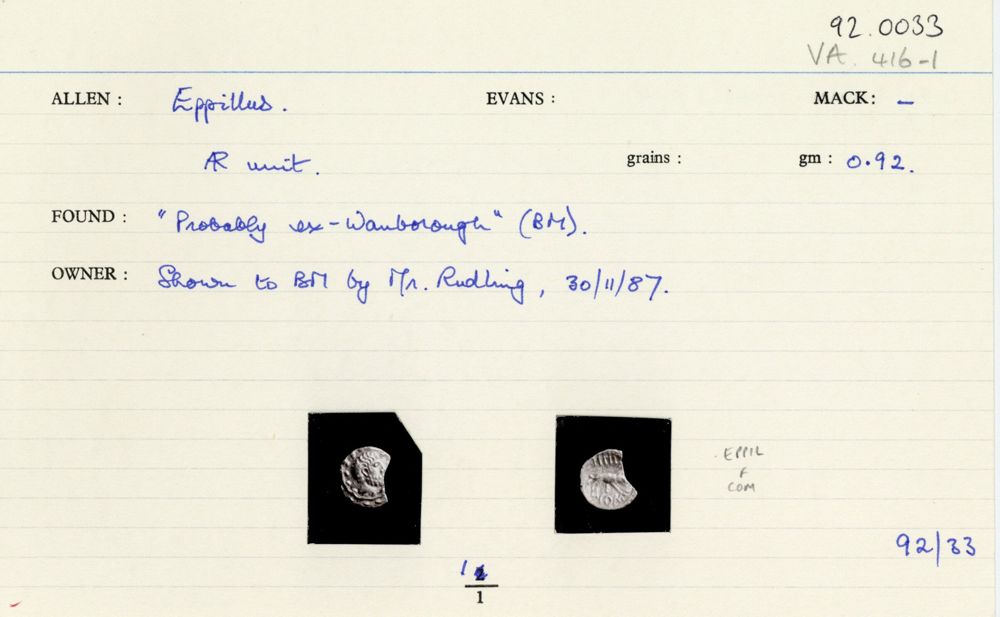 92.0033
VA. 416-1
ALLEN : Eppillus. EVANS : MACK: –
AR unit. grains : gm : 0.92.
FOUND : "Probably ex-Wanborough" (BM).
OWNER : Shown to BM by Mr. Rudling, 30/11/87.
EPPIL
F
COM
92/33
1
1